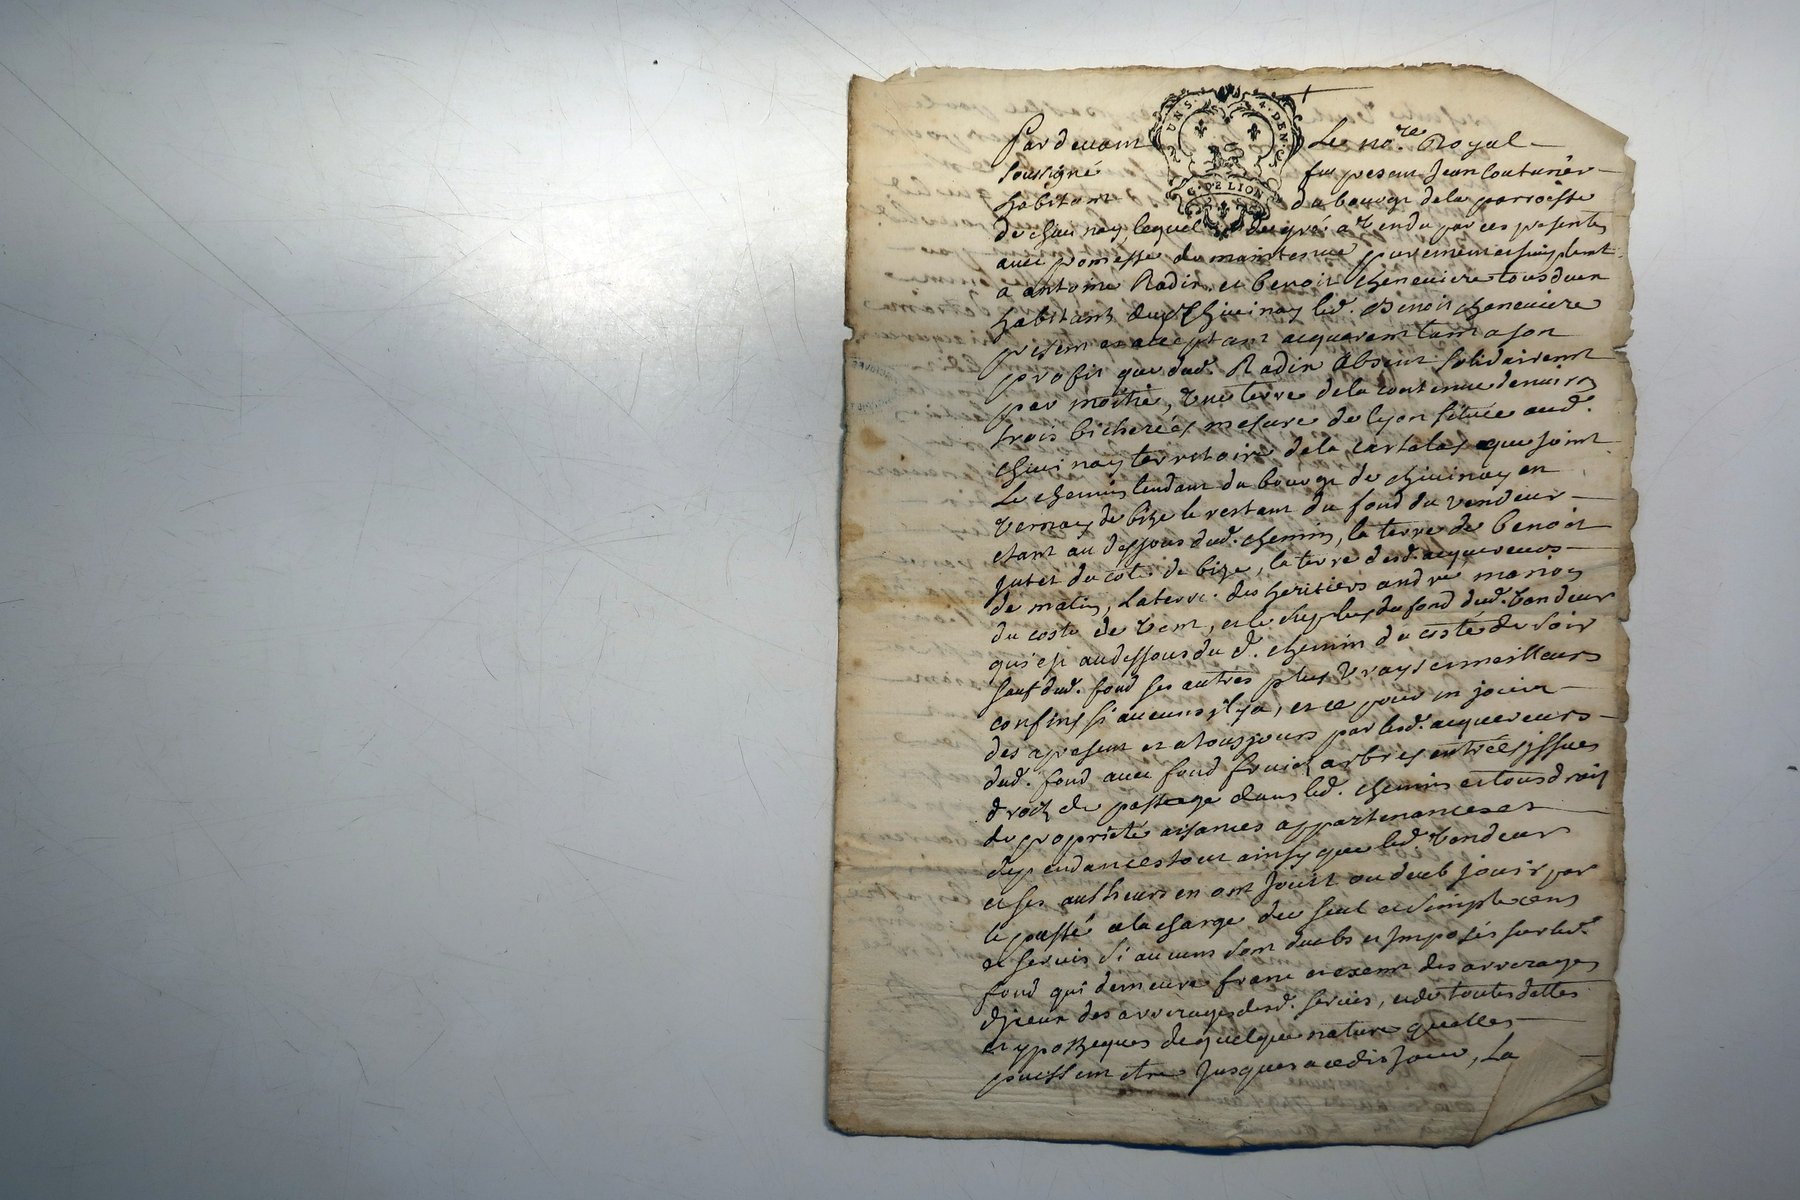 UN S. 4. DEN.
G. DE LION
Pardevant Le no.re Royal
soussigné fut present Jean Couturier
habitant du bourg de la parroisse
de chevinay, lequel de gré a Vendu par ces presentes
avec promesse de maintenue purement et simplemt.
a antoine Radix et benoit cheneviere tous deux
habitant dud. Chevinay led. Benoit cheneviere
present et acceptant acquerant tant a son
profit que dud. Radix absent solidairemt
par moitié, Une terre de la contenue denviron
trois bicherées mesure de lyon située aud.
chevinay territoire de la que joint
Le chemin tendant du bourg de chevinay en
de bize le restant du fond du vendeur
etant au dessous dud. chemin, la terre de benoit
du coté de bize, la terre desd. acquereurs
de matin, La terre des heritiers andré
du costé de Vent, et le surplus du fond dud. Vendeur
qui est au dessous du d. chemin du costé du soir
sauf dud. fond ses autres plus Vrays et meilleurs
confins si aucuns y a, et ce pour en jouir
des apresent et a tousjours par lesd. acquereurs
dud. fond avec fond fruits arbres entrées issues
droits de passage dans led. chemin et tous droits
de proprieté aisances appartenances et
dependances tout ainsy que led. Vendeur
et ses autheurs en ont Jouit ou deub jouir par
le passé a la charge du seul et simple cens
et servis si aucuns sont deubs et Imposés sur led.
fond qui demeure franc et exemt des arrerages
des arrerages desd. servis, et de toutes dettes
et ypotheques de quelque nature quelles
puissent etre Jusques a cedit Jour, La